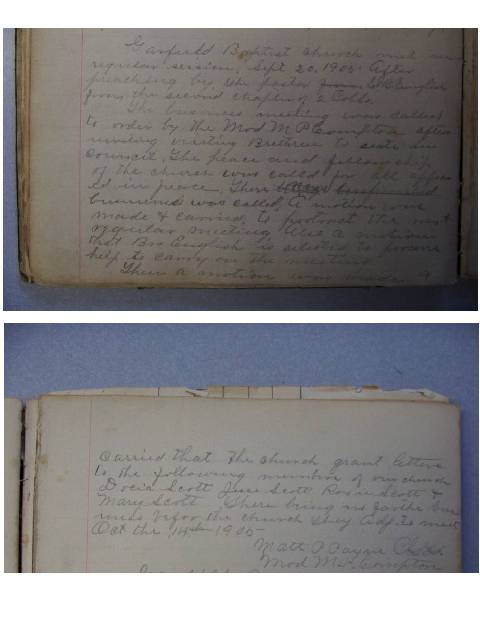 Garfield Baptist Church met in
regular session, Sept 20, 1905. After
preaching by the pastor English
from the second chapter 2 Coll.
The business meeting was called
to order by the Mod M. P. Compton after
inviting visiting Brethren to seats in
Council. The peace and fellowship
of the church was called for all
in peace, There
buisness was called, A motion was
made & carried to protract the next
regular meeting Also a motion
that Bro English is selected to procure
help to carry on the meeting
Then a motion was made &
carried that the church grant letters
to the following members of our church
Docia Scott June Scott Rosie Scott &
Mary Scott There being no farthe
befor the church they Adj. to meet
Oct the 14th 1905
Matt P Payne
Mod M. P. Compton